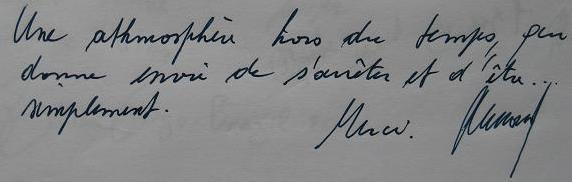 Une athmosphère hors du temps, qui
donne envie de s'arrêter et d'être...
simplement.
Merci.